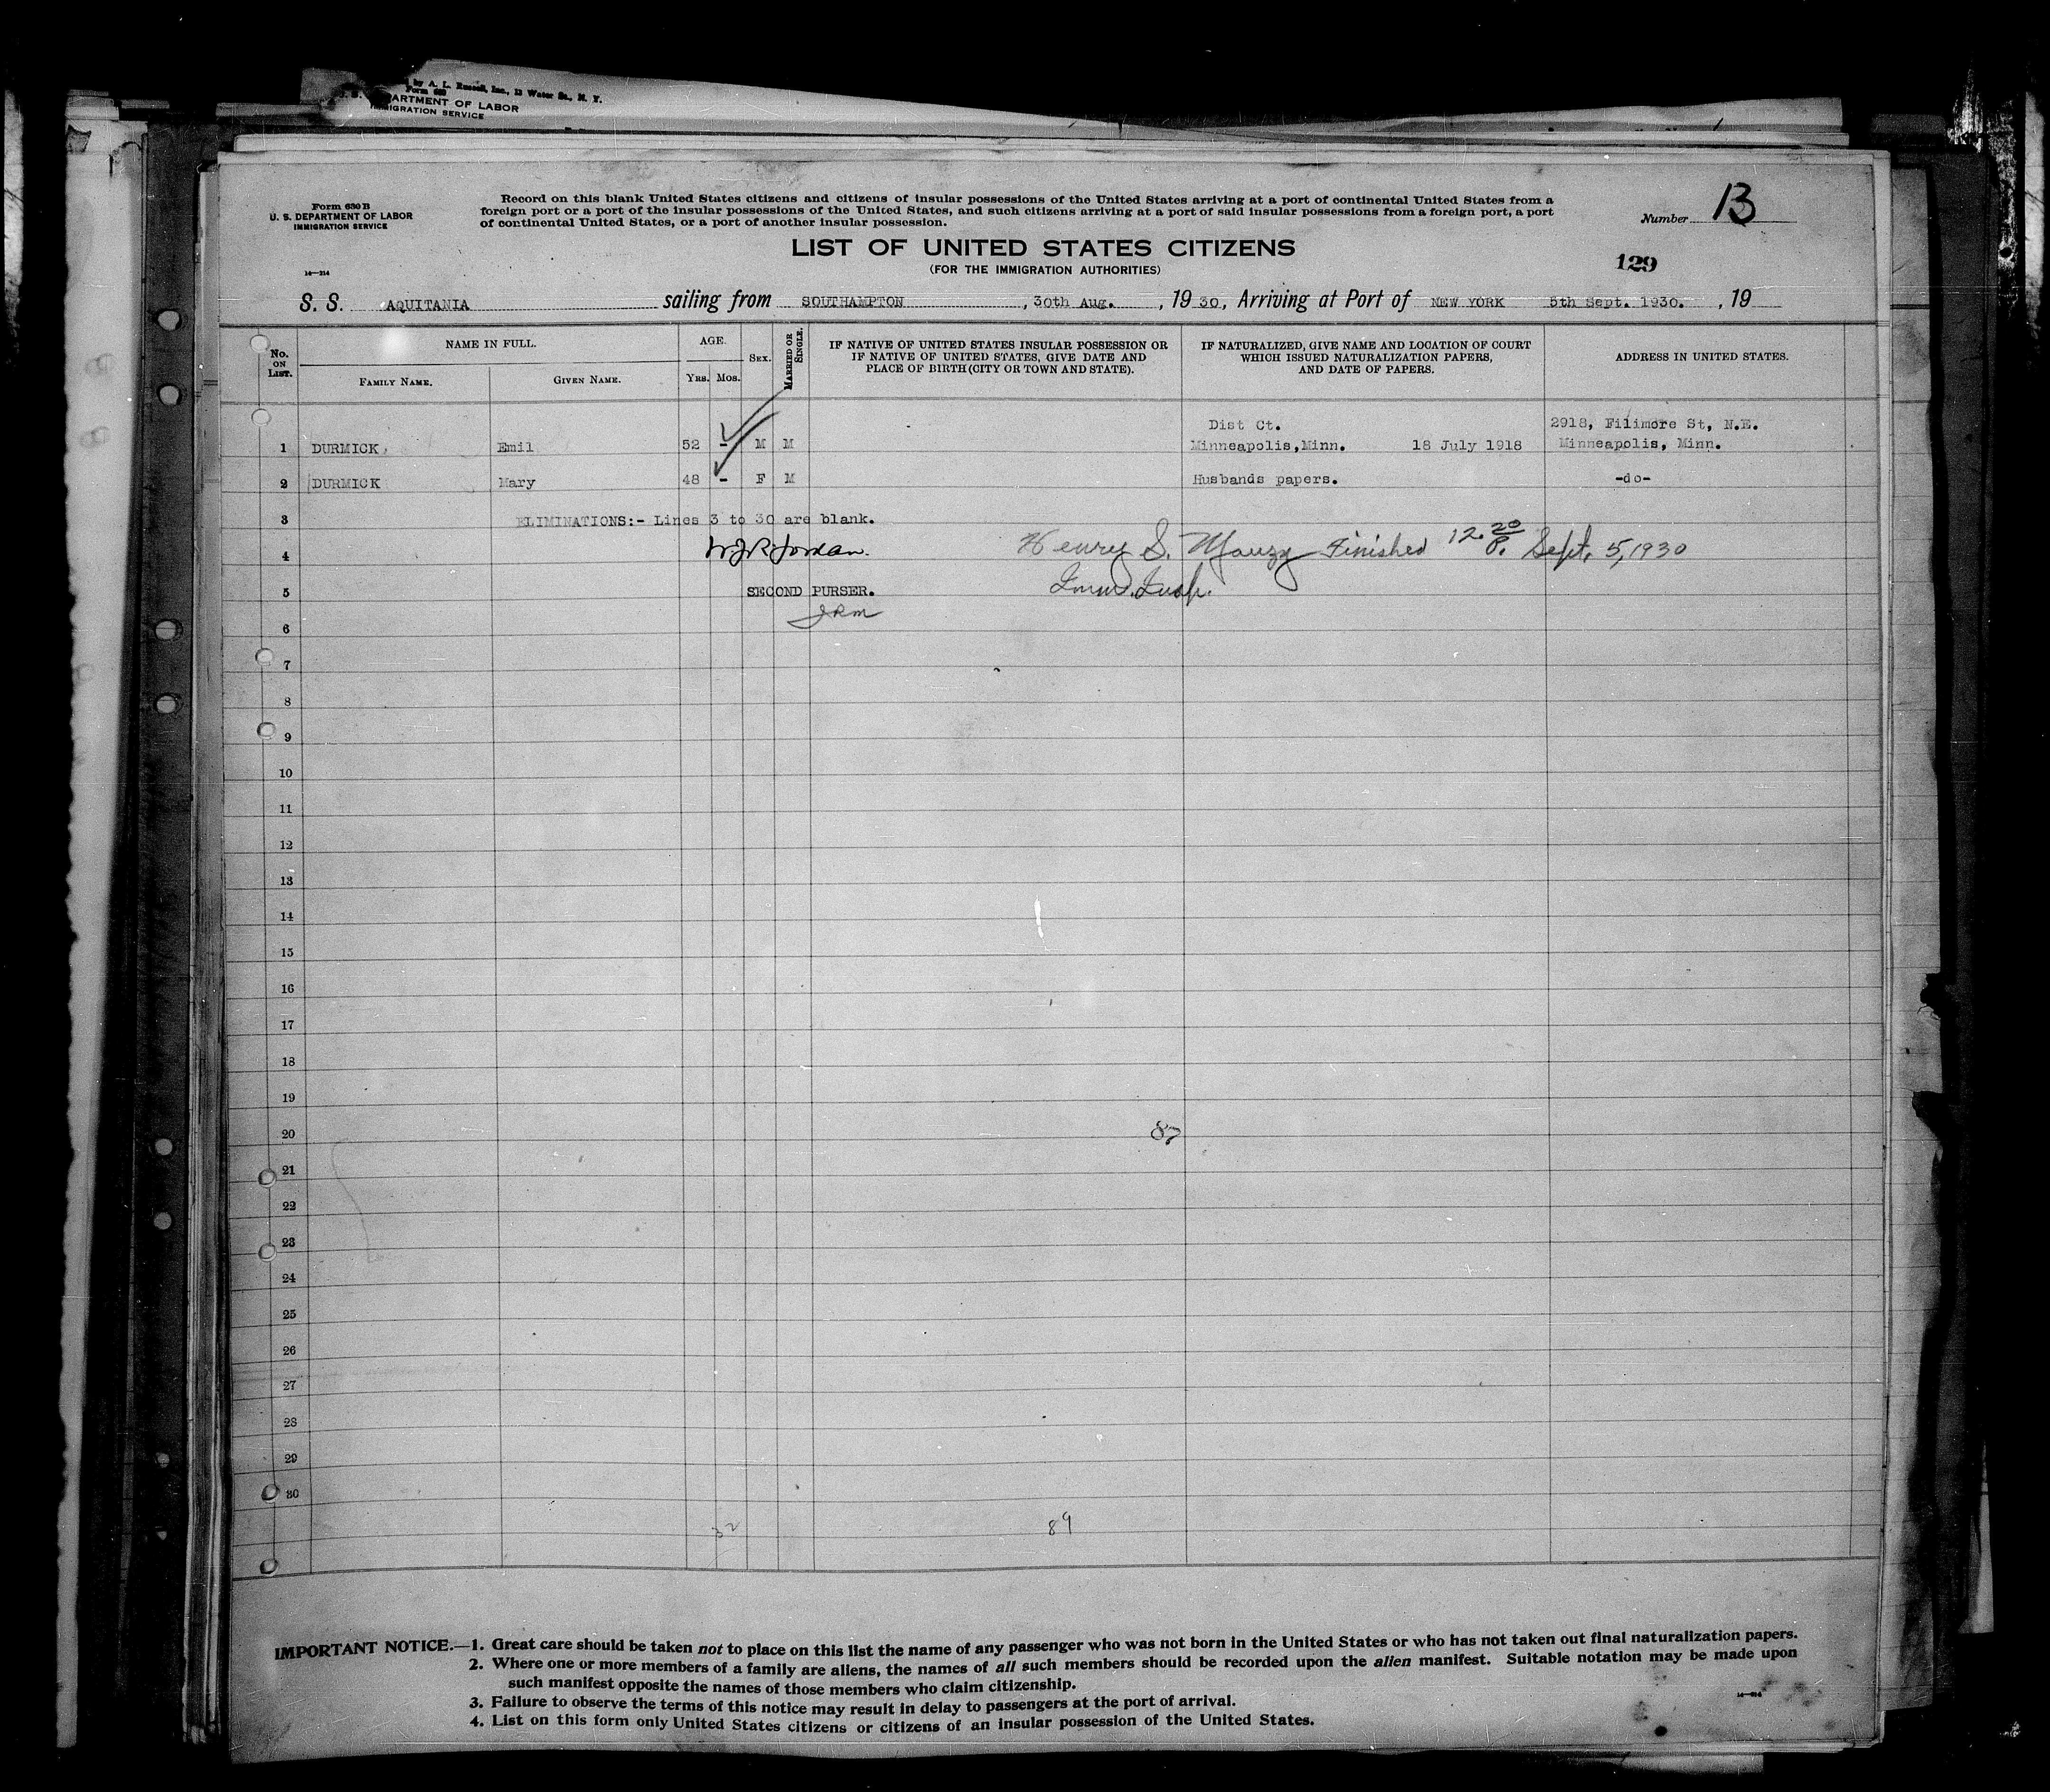 by A. L. Russell, Inc., 13 Water St., N. Y.
Form 630
DEPARTMENT OF LABOR
IMMIGRATION SERVICE
Form 630 B
U. S. DEPARTMENT OF LABOR
IMMIGRATION SERVICE
14—214
Record on this blank United States citizens and citizens of insular possessions of the United States arriving at a port of continental United States from a
foreign port or a port of the insular possessions of the United States, and such citizens arriving at a port of said insular possessions from a foreign port, a port
of continental United States, or a port of another insular possession.
Number 13
LIST OF UNITED STATES CITIZENS
(FOR THE IMMIGRATION AUTHORITIES)
129
S. S. AQUITANIA sailing from SOUTHAMPTON , 30th Aug. , 19 30, Arriving at Port of NEW YORK 5th Sept. 1930. , 19
No. ON LIST. NAME IN FULL. FAMILY NAME. GIVEN NAME. AGE. YRS. MOS. SEX. MARRIED OR SINGLE. IF NATIVE OF UNITED STATES INSULAR POSSESSION OR IF NATIVE OF UNITED STATES, GIVE DATE AND PLACE OF BIRTH (CITY OR TOWN AND STATE). IF NATURALIZED, GIVE NAME AND LOCATION OF COURT WHICH ISSUED NATURALIZATION PAPERS, AND DATE OF PAPERS. ADDRESS IN UNITED STATES.
Dist Ct. 2918, Fillmore St, N.E.
1 DURMICK Emil 52 - M M Minneapolis,Minn. 18 July 1918 Minneapolis, Minn.
2 DURMICK Mary 48 - F M Husbands papers. -do-
3 ELIMINATIONS:- Lines 3 to 30 are blank.
4 W J R Jordan. Henry S. Mauzy Finished 12.20 P. Sept. 5, 1930
5 SECOND PURSER. Imm. Insp.
JRM
6
7
8
9
10
11
12
13
14
15
16
17
18
19
20 87
21
22
23
24
25
26
27
28
29
30
32 89
IMPORTANT NOTICE.—1. Great care should be taken not to place on this list the name of any passenger who was not born in the United States or who has not taken out final naturalization papers.
2. Where one or more members of a family are aliens, the names of all such members should be recorded upon the alien manifest. Suitable notation may be made upon
such manifest opposite the names of those members who claim citizenship.
3. Failure to observe the terms of this notice may result in delay to passengers at the port of arrival.
14—214
4. List on this form only United States citizens or citizens of an insular possession of the United States.